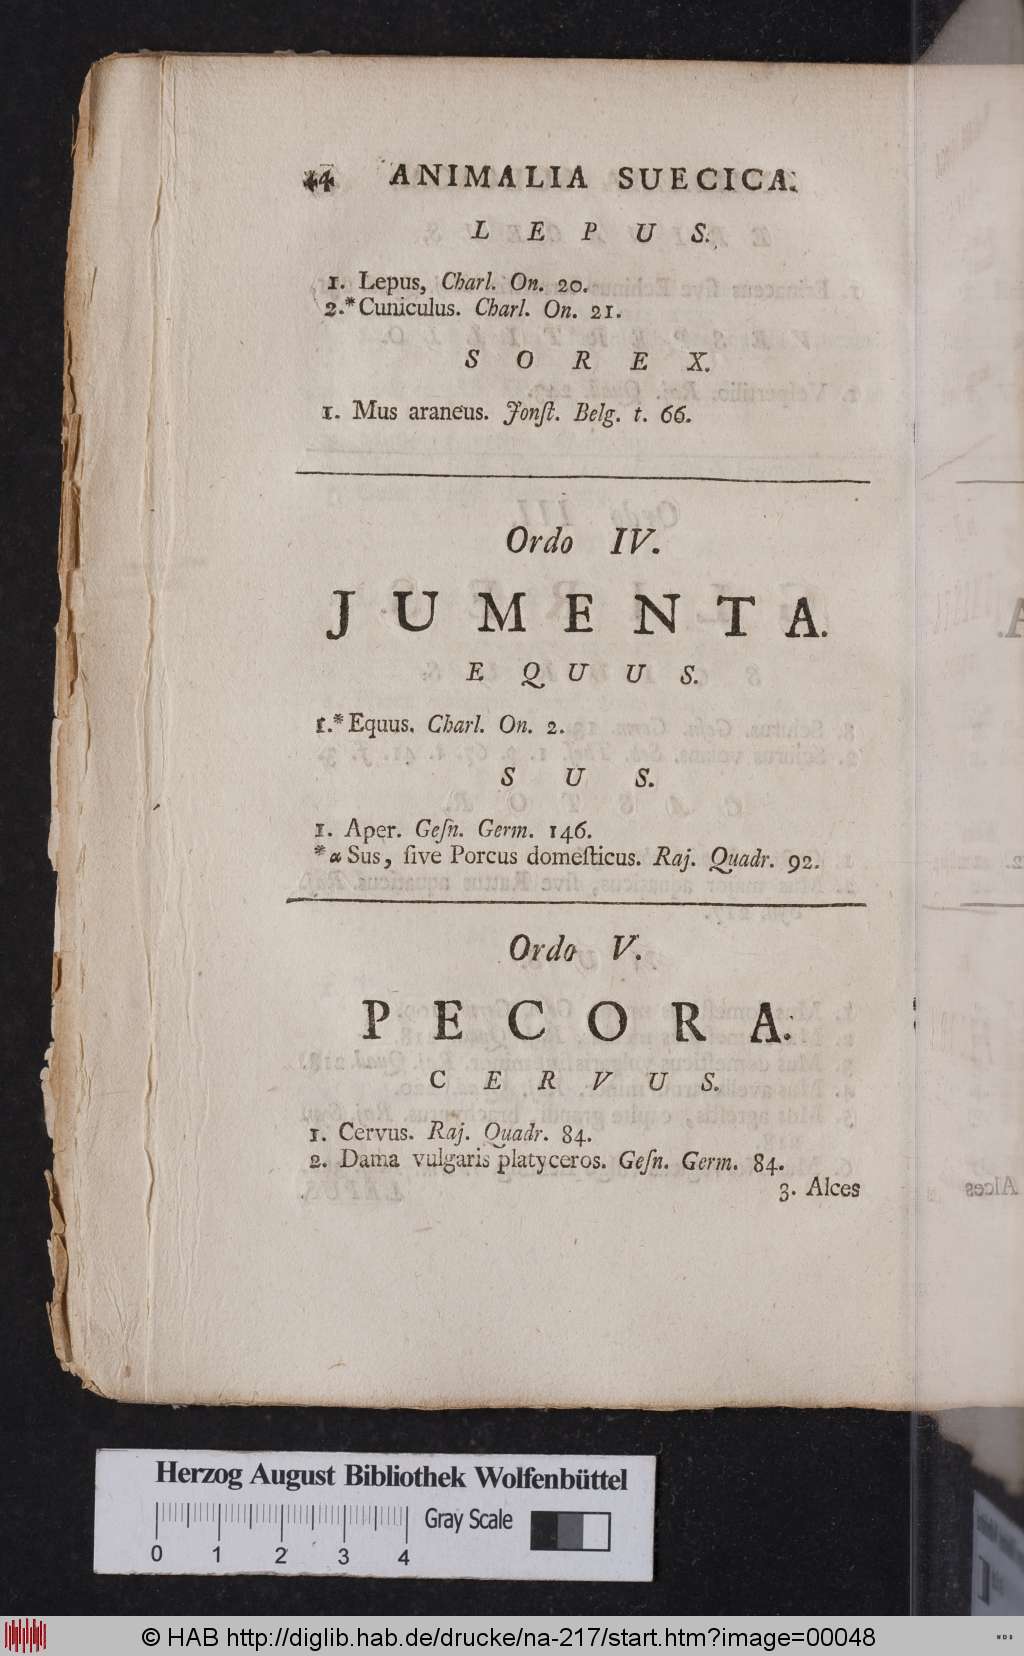 44 ANIMALIA SUECICA.
LEPUS.
1. Lepus, Charl. On. 20.
2.* Cuniculus. Charl. On. 21.
SOREX.
1. Mus araneus. Jonſt. Belg. t. 66.
Ordo IV.
JUMENTA.
EQUUS.
1.* Equus. Charl. On. 2.
SUS.
1. Aper. Geſn. Germ. 146.
* α Sus, ſive Porcus domeſticus. Raj. Quadr. 92.
Ordo V.
PECORA.
CERVUS.
1. Cervus. Raj. Quadr. 84.
2. Dama vulgaris platyceros. Geſn. Germ. 84.
3. Alces
Herzog August Bibliothek Wolfenbüttel
Gray Scale
0 1 2 3 4
© HAB http://diglib.hab.de/drucke/na-217/start.htm?image=00048